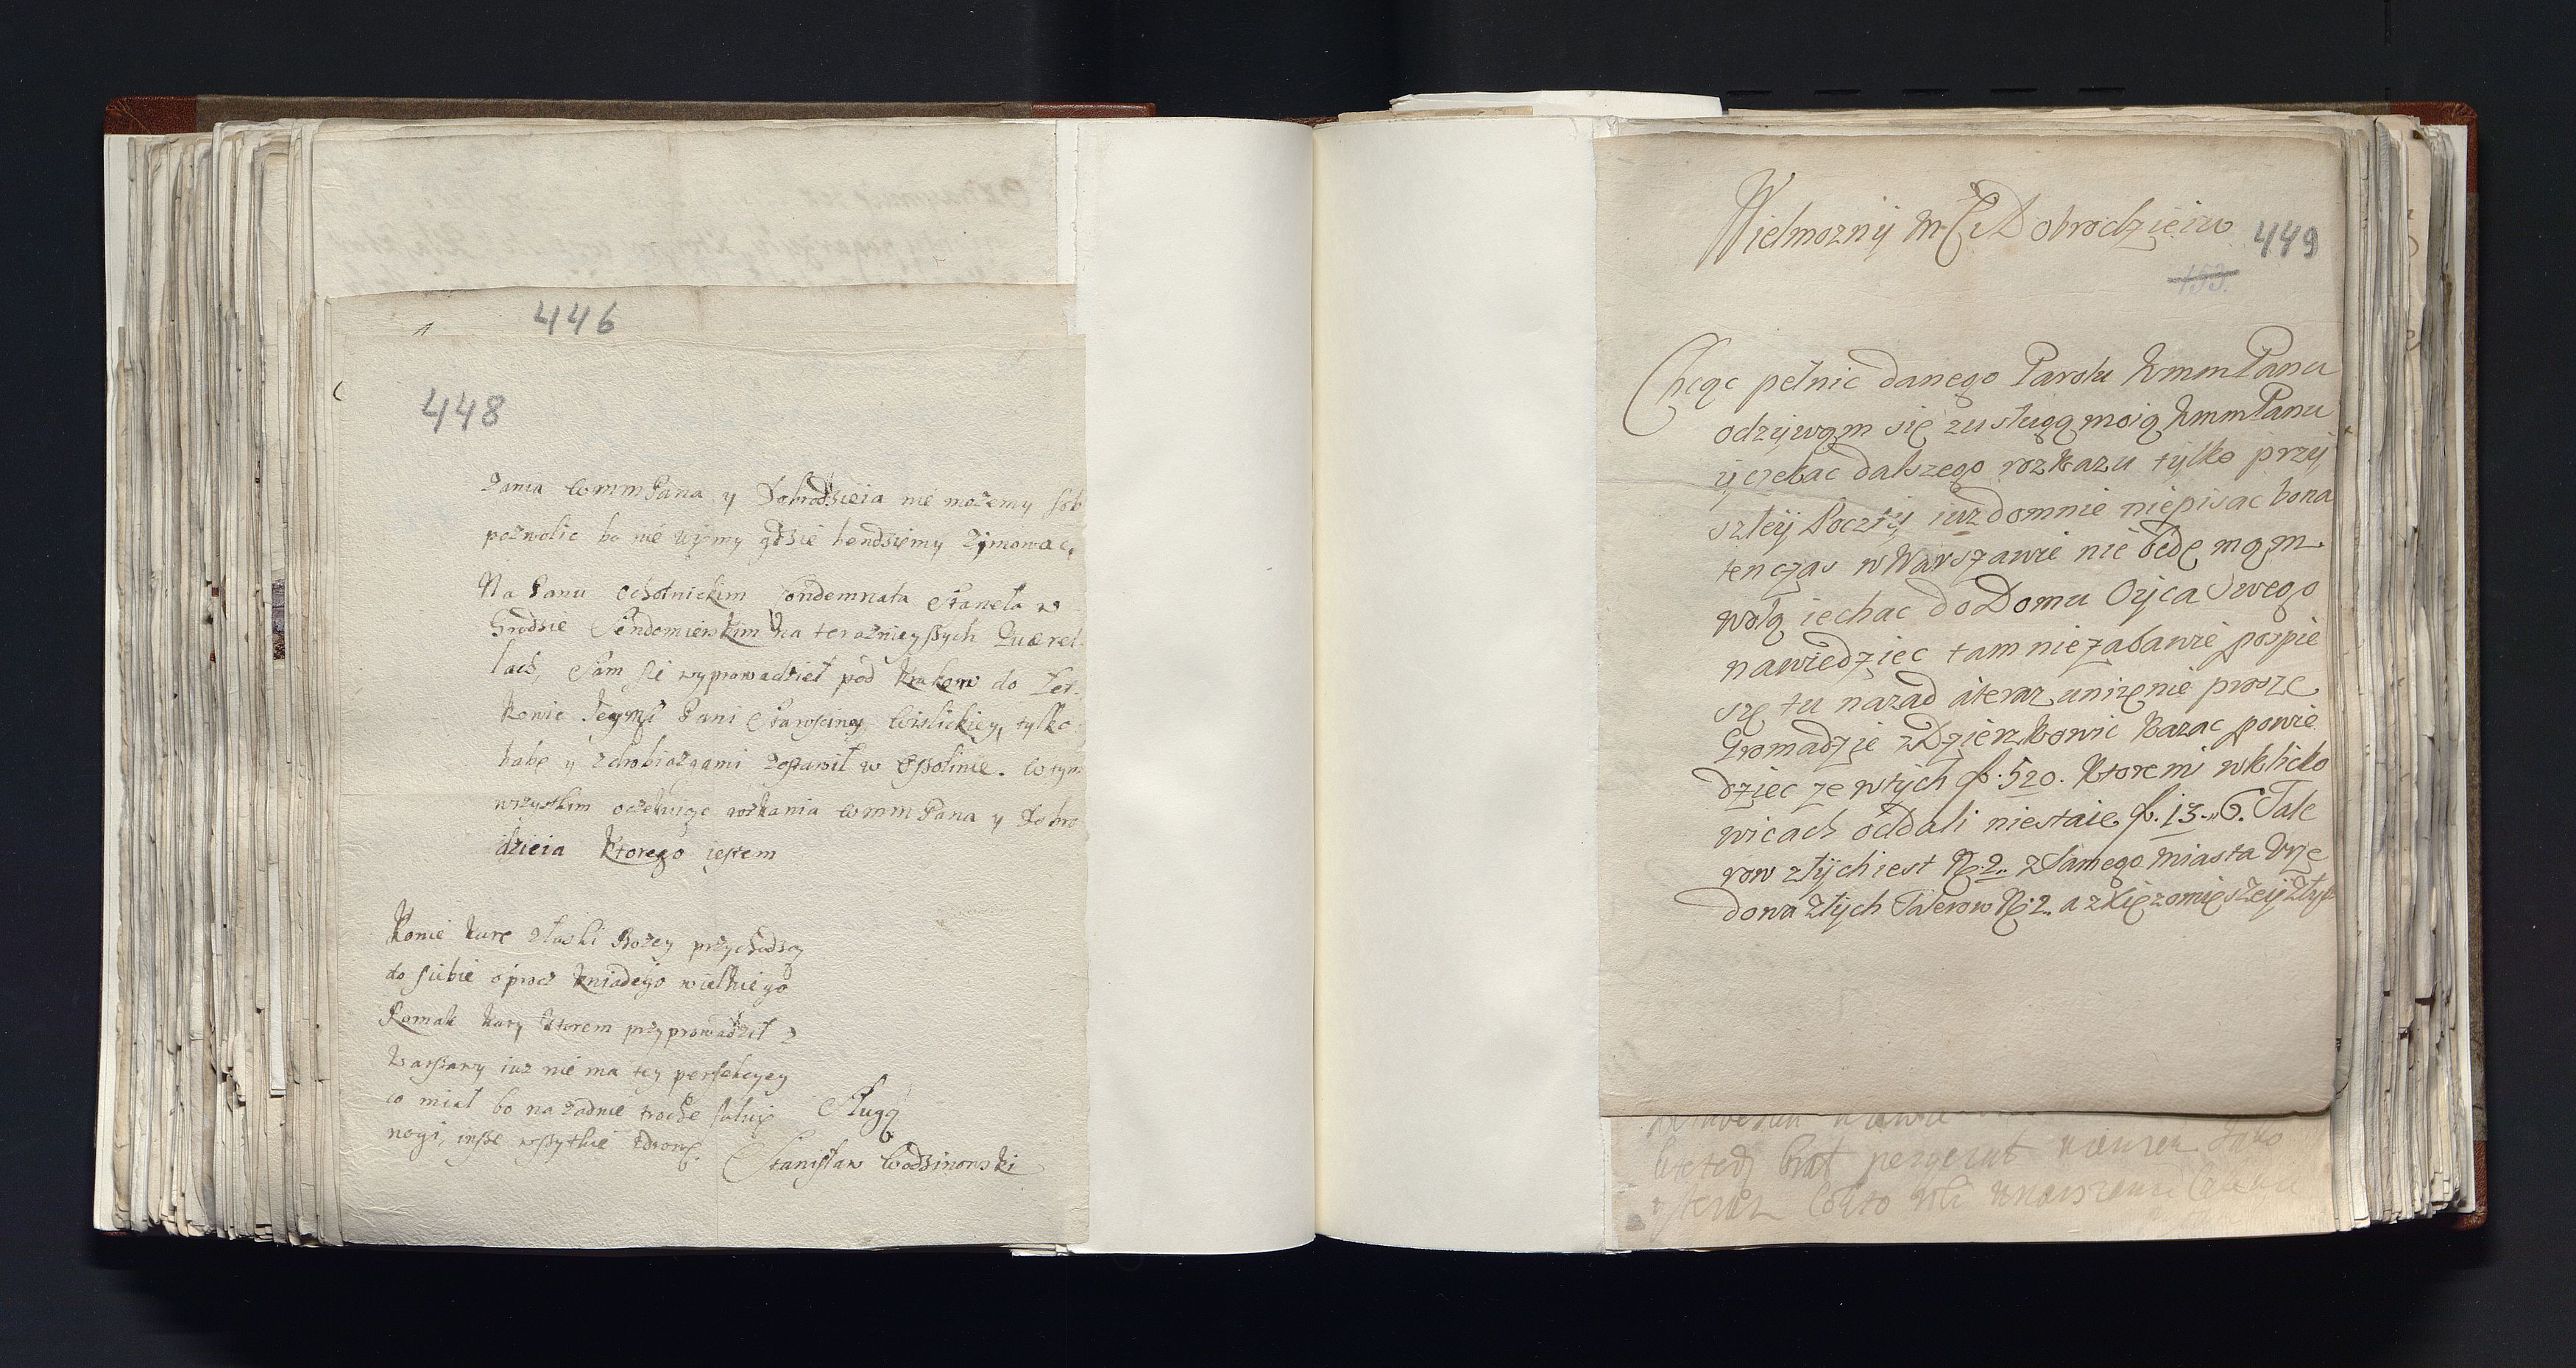 446
448
Pana WmmPana y Dobrodzieia nie możemy sob
pozwolic bo nie wiemy gdzie bendziemy zimowac,
Na Panu Ochotnickim Condemnata stanela w
Grodzie Sendomierskim Na teraznieyszych Querel
lach, Sam sie wyprowadzieł pod Krakow do
kowic Jeymsci Pani Starosciney Wislickiey, tylko
babe y z drobiazgami zostawił w Ossolinie. W tym
wszystkim oczekuię roskania WmmPana y Dobro
dzieia ktorego iestem
Konie kare z łaski Bozey przychodzą
do siebie oprocz gniadego wielkiego
Romak kary ktorem przyprowadził z
Warszawy iuz nie ma tey perfekcyey
co miał bo na zadnie troche
nogi, insze wszytkie zdrowe.
Sługą
Stanisław Wodzinowski
Wielmozny M Dobrodzieiu
449
153.
Chcąc pełnic danego Parolu WmmPanu
odzywam się zusługą moią WmmPanu
y czekac dalszego rozkazu tylko przy
szłey Poczty iuz domnie niepisac bona
tenczas w Warszawie nie będę mam
wolą iechac do Domu Oyca Swego
nawiedziec tam niezabawie pospie
szę tu nazad ateraz unizenie prosze
Gromadzie zDzierzkowic kazac powie
dziec ze wtych f. 520. ktoremi wklicko
wicach oddali niestaie f. 13. 6. Tale
row złych iest No 2. zSamego miasta Urzę
dowa złych Talerow No 2. a zXięzomięszey złyc